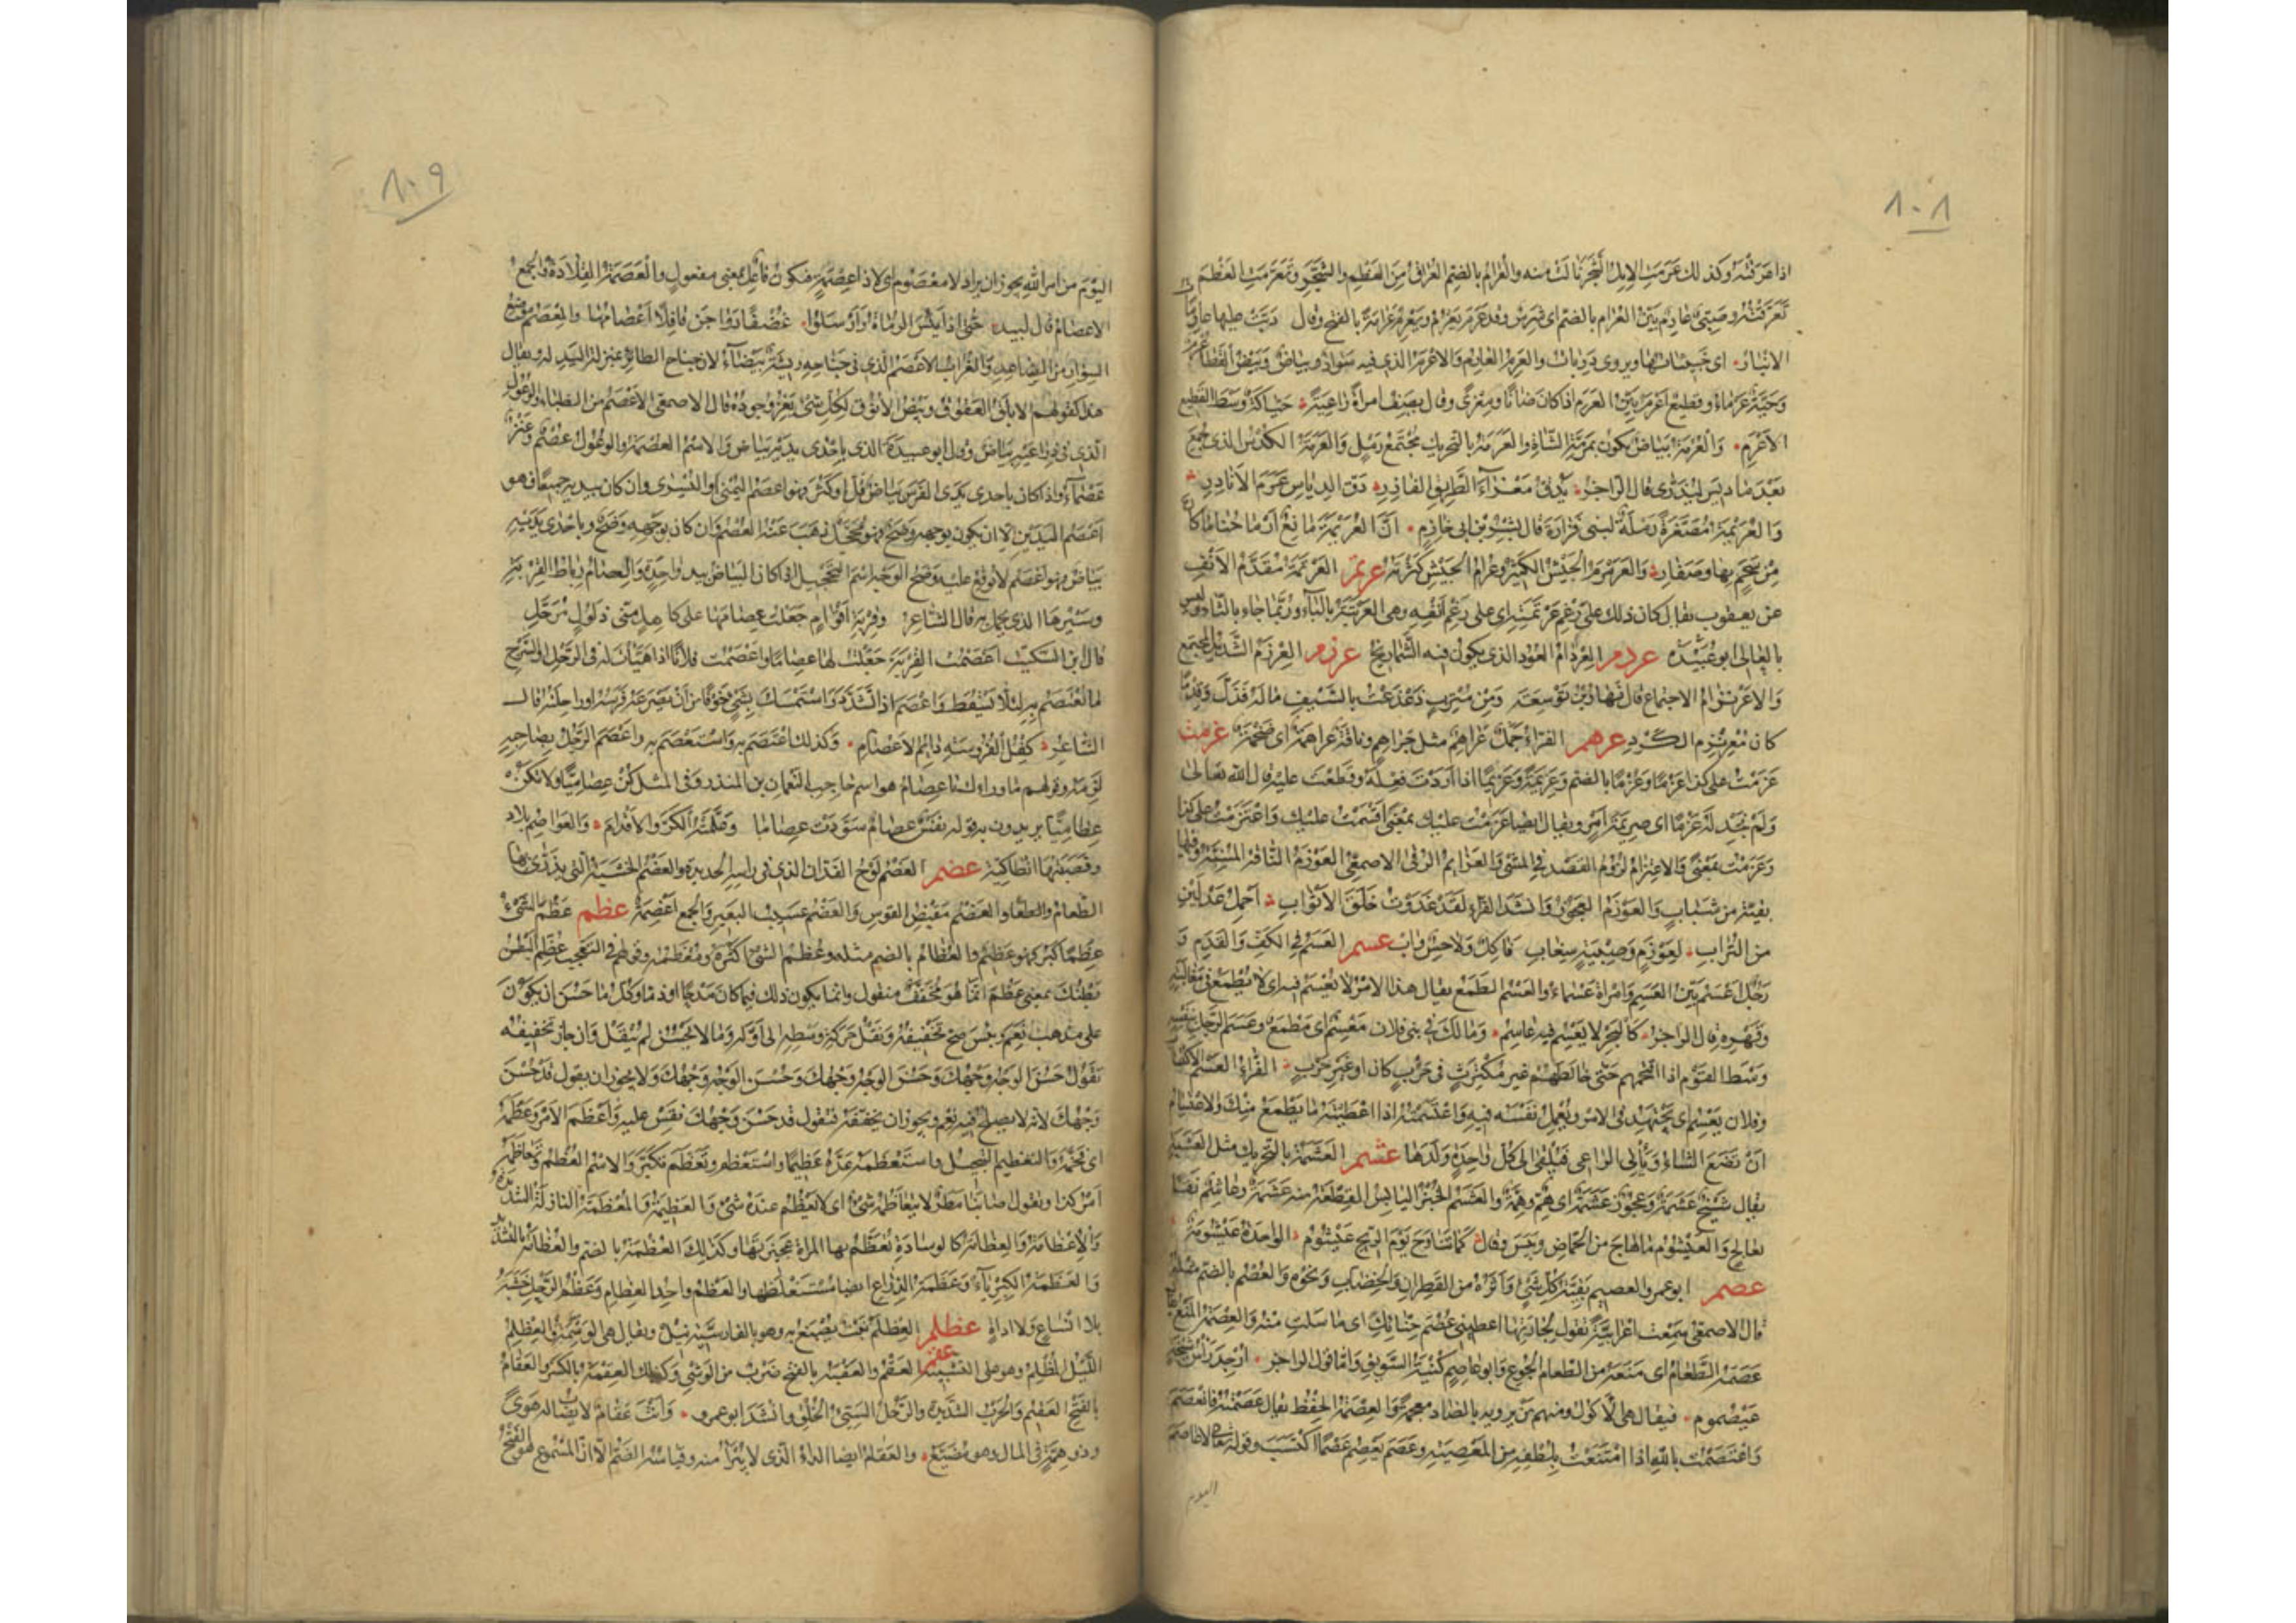 ٨٠٨
اذا عرقته وكذلك عرمت الابل الشجر نالت منه والعرام بالضم العراق من العظم والشجر وتعرمت العظم
تعرقته وصبي عارم بين العرام بالضم اى شرس وقد عرم يعرم ويعرم عرامة بالفتح وقال دبت عليها عارمات
الانبار اى خبيثاتها ويروى ذربات والعرم العارم والاعرم الذى فيه سواد وبياض وبيض القطا عرم
وحية عرماء وقطيع اعرم بين العرم اذا كان ضانا ومعزى وقال يصف امراة راعية حياكة وسط القطيع
الاعرم والعرمة بياض يكون بمرمة الشاة والعرمة بالتحريك مجتمع رمل والعرمة الكدس الذى جمع
بعد ما ديس ليذرى قال الراجز يدق معزاء الطريق الفازر دق الدياس عرم الانادر
والعريمة مصغرة رملة لبنى فزارة قال بشر بن ابى خازم ان العريمة مانع ارماحنا ما كان
من سحم بها وصفار والعرمرم الجيش الكثير وعرام الجيش كثرته عرتم العرتمة مقدم الانف
عن يعقوب يقال كان ذلك على رغم عرتمته اى على رغم انفه وهى العرتبة بالباء وربما جاء بالثاء وليس
بالعالى ابو عبيدة عردم العردام العود الذى يكون فيه الشماريخ عرزم العرزم الشديد المجتمع
والاعرنزام الاجتماع قال نهار بن توسعة ومن مترب دعدعت بالسيف ماله فذل وقدما
كان معرنزم الكرد عرهم الفراء جمل عراهم مثل جراهم وناقة عراهمة اى ضخمة عزمت
عزمت على كذا عزما وعزما بالضم وعزيمة وعزيما اذا اردت فعله وقطعت عليه قال الله تعالى
ولم نجد له عزما اى صريمة امر ويقال ايضا عزمت عليك بمعنى اقسمت عليك واعتزمت على كذا
وعزمت بمعنى والاعتزام لزوم القصد فى المشى والعزائم الرقى الاصمعى العوزم الناقة المسنة وفيها
بقية من شباب والعوزم العجوز وانشد الفراء لقد غدوت خلق الاثواب احمل عدلين
من التراب لعوزم وصبية سغاب فآكل ولاحس وآب عسم العسم فى الكف والقدم و
رجل اعسم بين العسم وامراة عسماء والعسم الطمع يقال هذا الامر لا يعسم فيه اى لا يطمع فى مغالبته
وقهره قال الراجز كالبحر لا يعسم فيه عاسم ومالك فى بنى فلان معسم اى مطمع وعسم الرجل بنفسه
وسط القوم اذا اقتحمهم حتى خالطهم غير مكترث فى حرب كان او غير حرب الفراء العسم الاكتساب
وفلان يعسم اى يجتهد فى الامر ويعمل نفسه فيه واعتسمته اذا اعطيته ما يطمع منك والاعتسام
ان تضع الشاء ويأتى الراعى فيلقى الى كل واحدة ولدها عشم العشمة بالتحريك مثل العشبة
يقال شيخ عشمة وعجوز عشمة اى هم وهمة والعشم الخبز اليابس القطعة منه عشمة وعاشم نقا
بعالج والعيشوم ما هاج من الحماض ويبس وقال كما تناوح يوم الريح عيشوم الواحدة عيشومة
عصم ابو عمرو العصيم بقية كل شىء واثره من القطران والخضاب ونحوه والعصم بالضم مثله
قال الاصمعى سمعت اعرابية تقول لجارتها اعطينى عصم حنائك اى ما سلت منه والعصمة المنع يقال
عصمه الطعام اى منعه من الطعام الجوع وابو عاصم كنية السويق واما قول الراجز ارجد رأس شيخة
عيضموم فيقال هى الاكول ومنهم من يرويه بالضاد معجمة والعصمة الحفظ يقال عصمته فانعصم
واعتصمت بالله اذا امتنعت بلطفه من المعصية وعصم يعصم عصما اكتسب وقوله تعالى لا عاصم
اليوم
٨٠٩
اليوم من امر الله يجوز ان يراد لا معصوم اى لا ذا عصمة فيكون فاعل بمعنى مفعول والعصمة القلادة والجمع
الاعصام قال لبيد حتى اذا يئس الرماة وارسلوا غضفا دواجن قافلا اعصامها والمعصم موضع
السوار من الساعد والغراب الاعصم الذى فى جناحه ريشة بيضاء لان جناح الطائر بمنزلة اليد له ويقال
هذا كقولهم الابلق العقوق وبيض الانوق لكل شىء يعز وجوده قال الاصمعى الاعصم من الظباء والوعول
الذى فى ذراعيه بياض وقال ابو عبيدة الذى باحدى يديه بياض والاسم العصمة والوعول عصم وعنز
عصماء واذا كان باحدى يدى الفرس بياض قل او كثر فهو اعصم اليمنى او اليسرى وان كان بيديه جميعا فهو
اعصم اليدين الا ان يكون بوجهه وضح فهو محجل ذهب عنه العصم وان كان بوجهه وضح وباحدى يديه
بياض فهو اعصم لا يوقع عليه وضح الوجه اسم التحجيل اذا كان البياض بيد واحدة والعصام رباط القربة
وسيرها الذى يحمل به قال الشاعر وقربة اقوام جعلت عصامها على كاهل منى ذلول مرحل
قال ابن السكيت اعصمت القربة جعلت لها عصاما واعصمت فلانا اذا هيأت له فى الرحل او السرج
ما يعتصم به لئلا يسقط واعصم اذا تشدد واستمسك بشىء خوفا من ان تصرعه فرسه او راحلته قال
الشاعر كفل الفروسة دائم الاعصام وكذلك اعتصم به واستعصم به واعصم الرجل بصاحبه
لزمه وقولهم ما وراءك يا عصام هو اسم حاجب النعمان بن المنذر وفى المثل كن عصاميا ولا تكن
عظاميا يريدون به قوله نفس عصام سودت عصاما وعلمته الكر والاقدام والعواصم بلاد
وقصبتها انطاكية عضم العضم لوح الفدان الذى فى راسه الحديدة والعضم الخشبة التى يذرى بها
الطعام والعضم مقبض القوس والعضم عسيب البعير والجمع اعضمة عظم عظم الشىء
عظما كبر فهو عظيم والعظام بالضم مثله وعظم الشىء اكثره ومعظمه وقولهم فى التعجب عظم البطن
بطنك بمعنى عظم انما هو مخفف منقول وانما يكون ذلك فيما كان مدحا او ذما وكل ما حسن ان يكون
على مذهب نعم وبئس صح تخفيفه ونقل حركة وسطه الى اوله وما لا يحسن لم ينقل وان جاز تخفيفه
تقول حسن الوجه وجهك وحسن الوجه وجهك وحسن الوجه وجهك ولا يجوز ان يقول قد حسن
وجهك لانه لا يصلح فيه نعم ويجوز ان يخففه فتقول قد حسن وجهك فقس عليه واعظم الامر وعظمه
اى فخمه والتعظيم التبجيل واستعظمه عده عظيما واستعظم وتعظم تكبر والاسم العظم وتعاظمه
امر كذا وتقول اصابنا مطر لا يتعاظمه شىء اى لا يعظم عنده شىء والعظيمة والمعظمة النازلة الشديدة
والاعظامة والعظامة كالوسادة تعظم بها المراة عجيزتها وكذلك العظمة بالضم والعظامة بالتشديد
والعظمة الكبرياء وعظمة الذراع ايضا مستغلظها والعظم واحد العظام وعظم الرحل خشبه
بلا انساع ولا اداة عظلم العظلم نبت يصبغ به وهو بالفارسية نيل ويقال هى الوسمة والعظلم
الليل المظلم وهو على التشبيه عقم العقم والعقمة بالفتح ضرب من الوشى وكذلك العقمة بالكسر والعقام
بالفتح العقيم والحرب الشديدة والرجل السيئ الخلق وانشد ابو عمرو وانت عقام لا يصاب له هوى
وذو همة فى المال وهو مضيع والعقام ايضا الداء الذى لا يبرأ منه وقياسه الضم الا ان المسموع هو الفتح